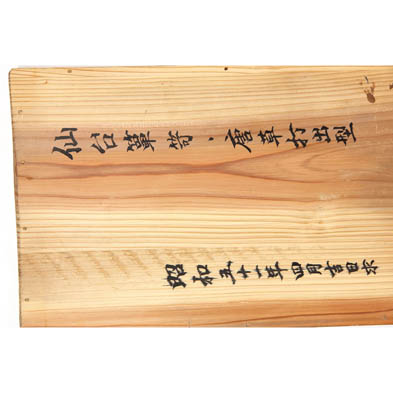 仙台箪笥・唐草打出型
昭和五十一年四月吉日求